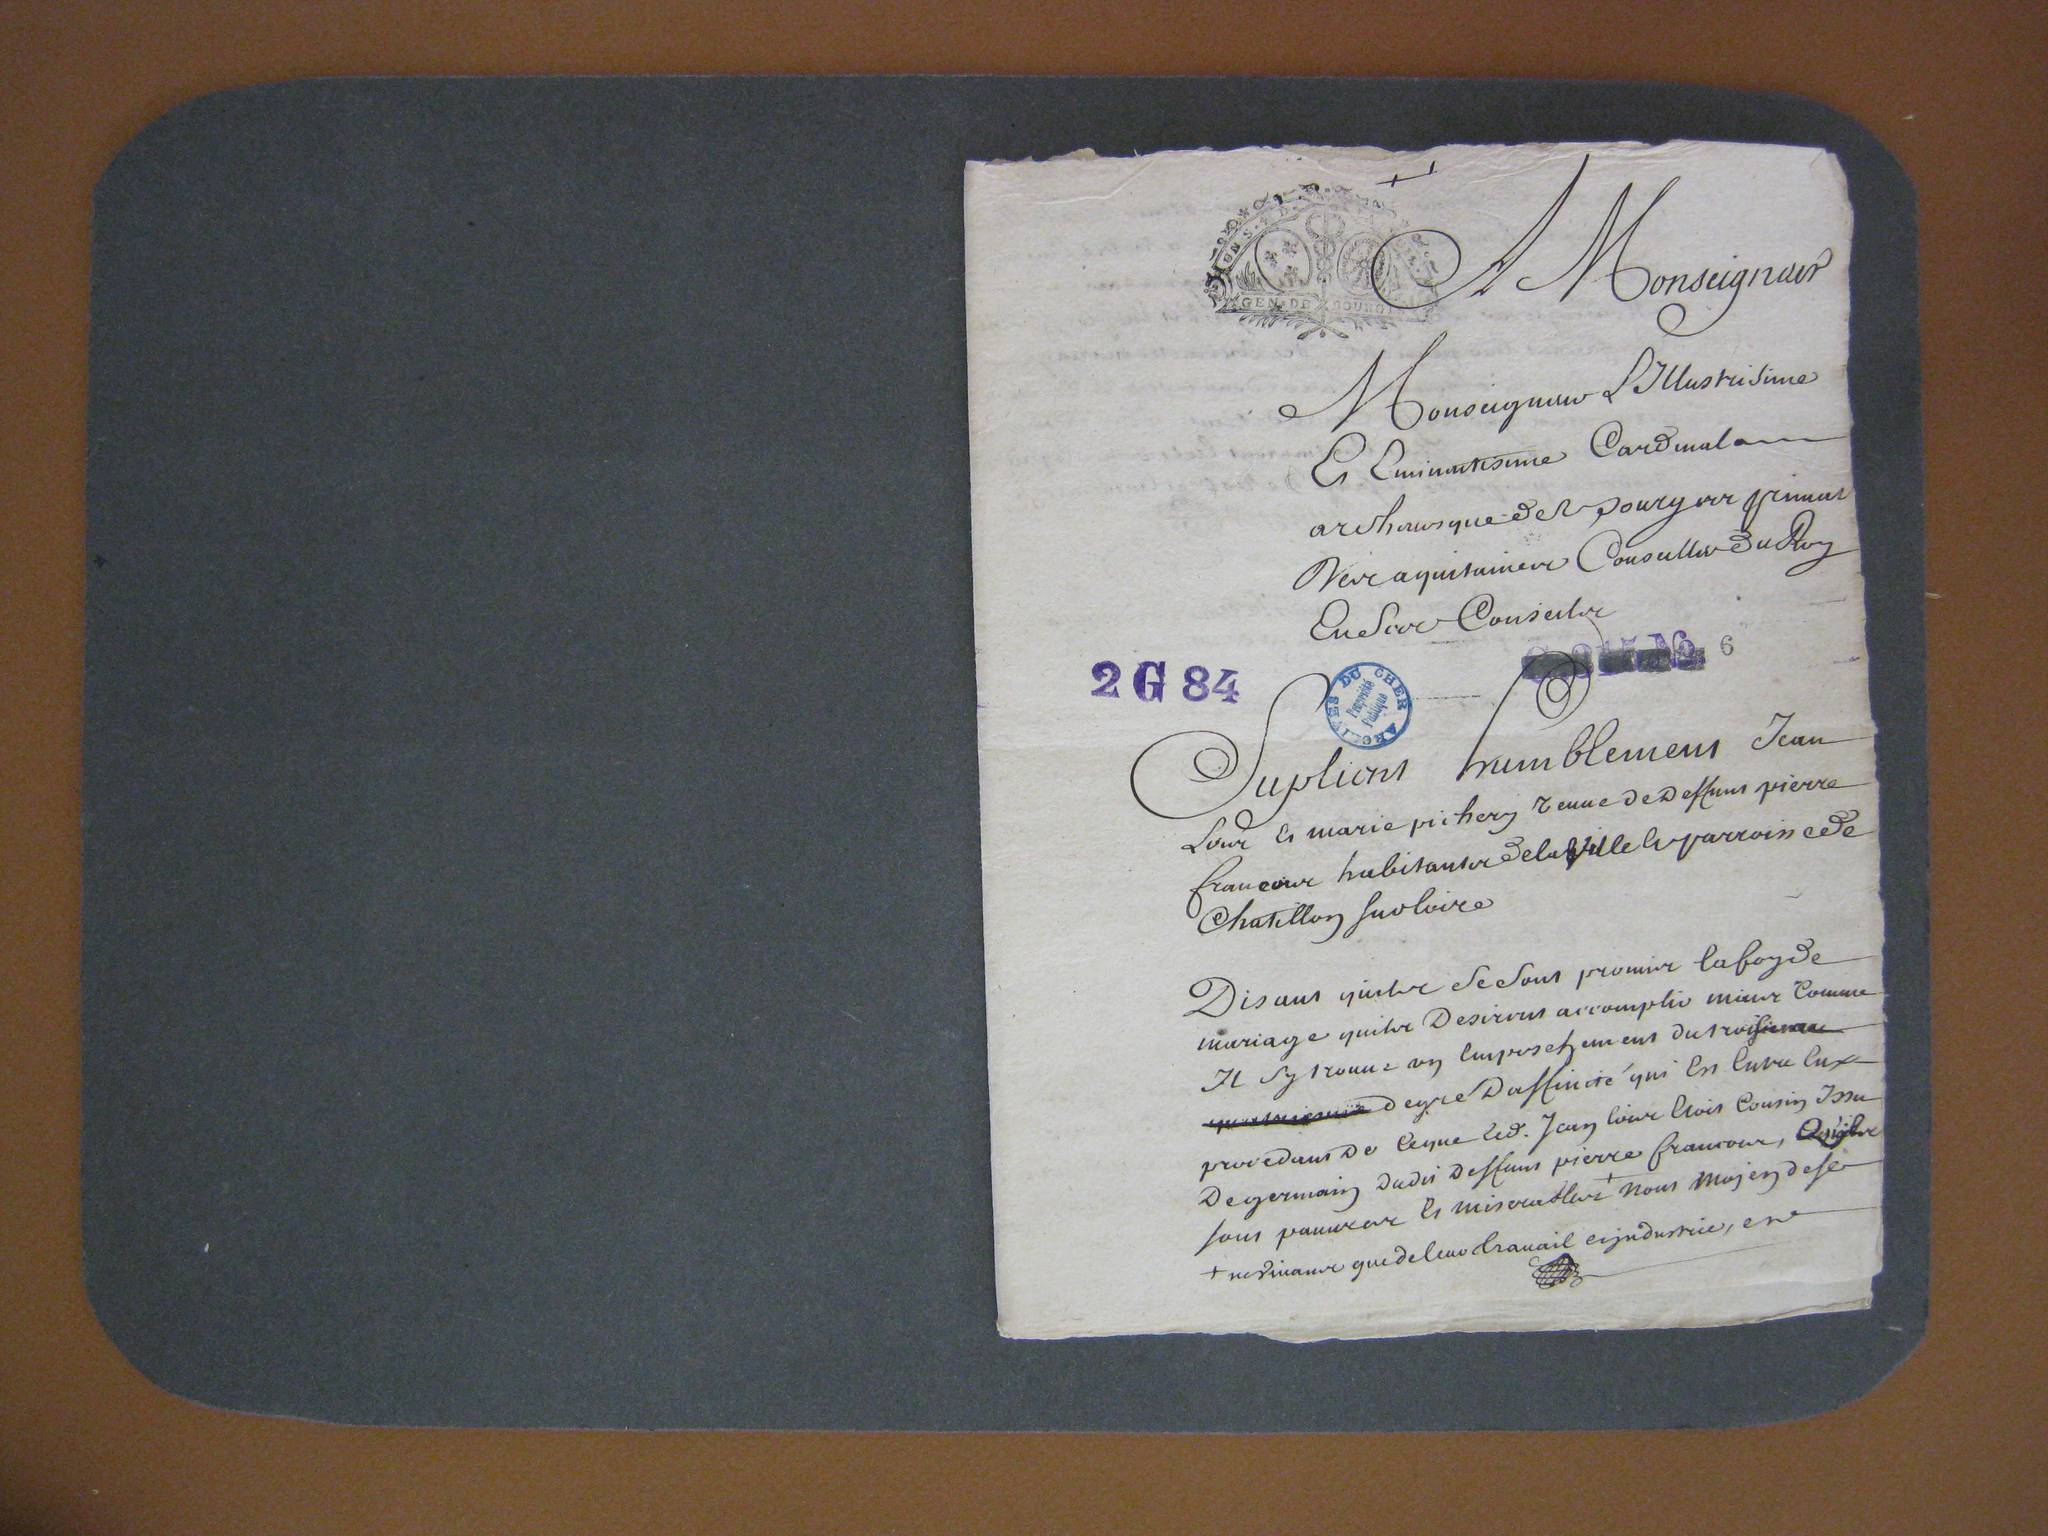 GEN. DE BOURG
A Monseigneur
Monseigneur L'Illustrissime
Et Eminentissime Cardinal
archevesque de Bourges primat
des aquitaines Conseiller du Roy
En Ses Conseils
2 G 84
ARCHIVES DU CHER
Propriété
Publique
6
Suplient humblement Jean
et marie pichery veuve de deffunt pierre
francour habitants de la ville et parroisse de
Chatillon sur loire
Disant quils se sont promis la foy de
mariage quils desirent accomplir mais comme
Il sy trouve un Empeschement du troisieme
degré daffinité qui est entre eux
procedant de ceque led. Jean estoit Cousin Issu
de germain dudit deffunt pierre francour, quils
sont pauvres et miserables + nont moyen de se
+ ne vivans que de leur travail et industrie, et